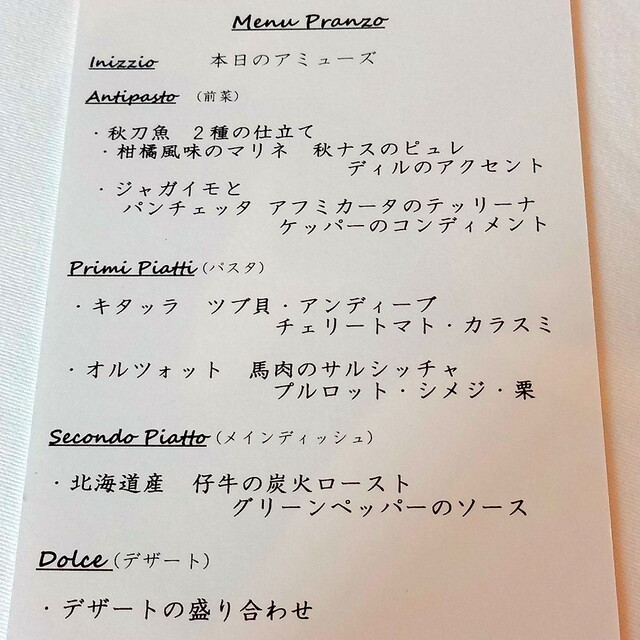 Menu Pranzo
Inizzio 本日のアミューズ
Antipasto (前菜)
・秋刀魚 2種の仕立て
・柑橘風味のマリネ 秋ナスのピュレ
ディルのアクセント
・ジャガイモと
パンチェッタ アフミカータのテッリーナ
ケッパーのコンディメント
Primi Piatti (パスタ)
・キタッラ ツブ貝・アンディーブ
チェリートマト・カラスミ
・オルツォット 馬肉のサルシッチャ
プルロット・シメジ・栗
Secondo Piatto (メインディッシュ)
・北海道産 仔牛の炭火ロースト
グリーンペッパーのソース
Dolce (デザート)
・デザートの盛り合わせ